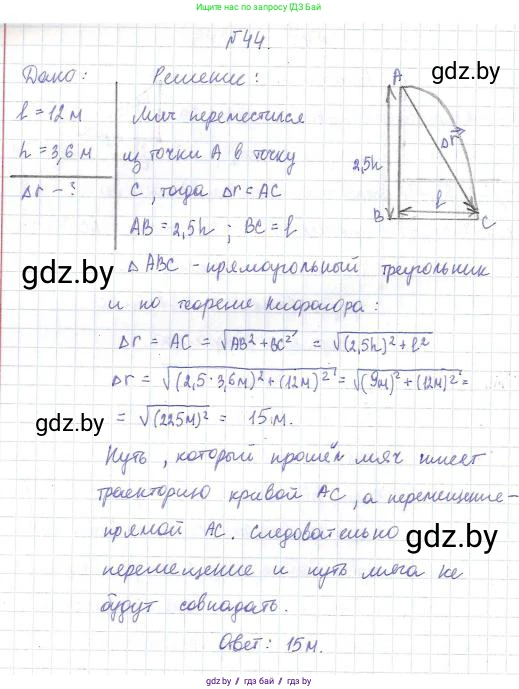 Решать по запросу? Забирай!
№44.
gdz.by
Дано:
Решение:
A
l = 12 м
Мяч переместился
h = 3,6 м
из точки A в точку
2,5h
Δr
Δr - ?
C, тогда Δr = AC
l
AB = 2,5h ; BC = l
B
C
gdz.by
Δ ABC - прямоугольный треугольник
и по теореме Пифагора:
Δr = AC = √(AB² + BC²) = √((2,5h)² + l²)
Δr = √((2,5·3,6м)² + (12м)²) = √((9м)² + (12м)²) =
gdz.by
= √(225м)² = 15 м.
Путь, который прошёл мяч имеет
траекторию кривой AC, а перемещение-
прямой AC. Следовательно
gdz.by
перемещение и путь мяча не
будут совпадать.
Ответ: 15 м.
gdz.by / гдз бай / gdz.by